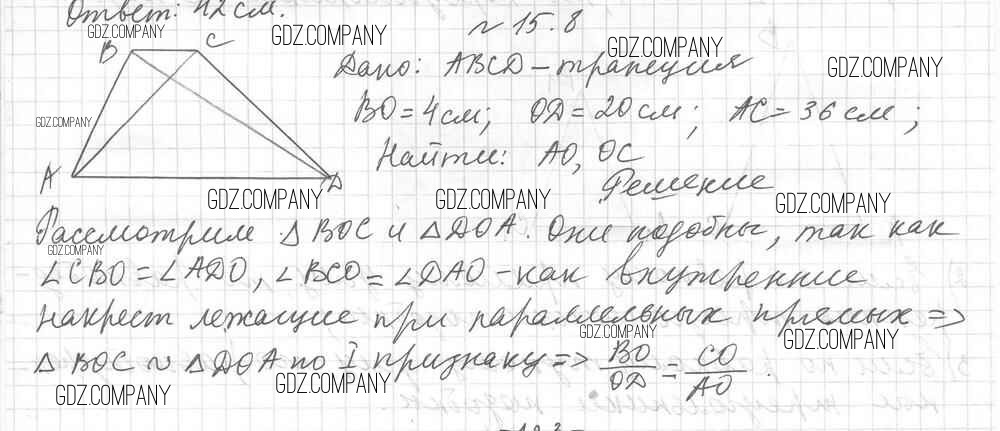 Ответ: 42 см.
GDZ.COMPANY
GDZ.COMPANY
№ 15.8
GDZ.COMPANY
B C
Дано: ABCD – трапеция
GDZ.COMPANY
BO = 4 см; OD = 20 см; AC = 36 см;
GDZ.COMPANY
Найти: AO, OC
A D
Решение
GDZ.COMPANY GDZ.COMPANY GDZ.COMPANY
Рассмотрим △ BOC и △ DOA. Они подобны, так как
GDZ.COMPANY
∠CBO = ∠ADO, ∠BCO = ∠DAO – как внутренние
накрест лежащие при параллельных прямых =>
GDZ.COMPANY GDZ.COMPANY
△ BOC ~ △ DOA по I признаку => BO/OD = CO/AO
GDZ.COMPANY GDZ.COMPANY